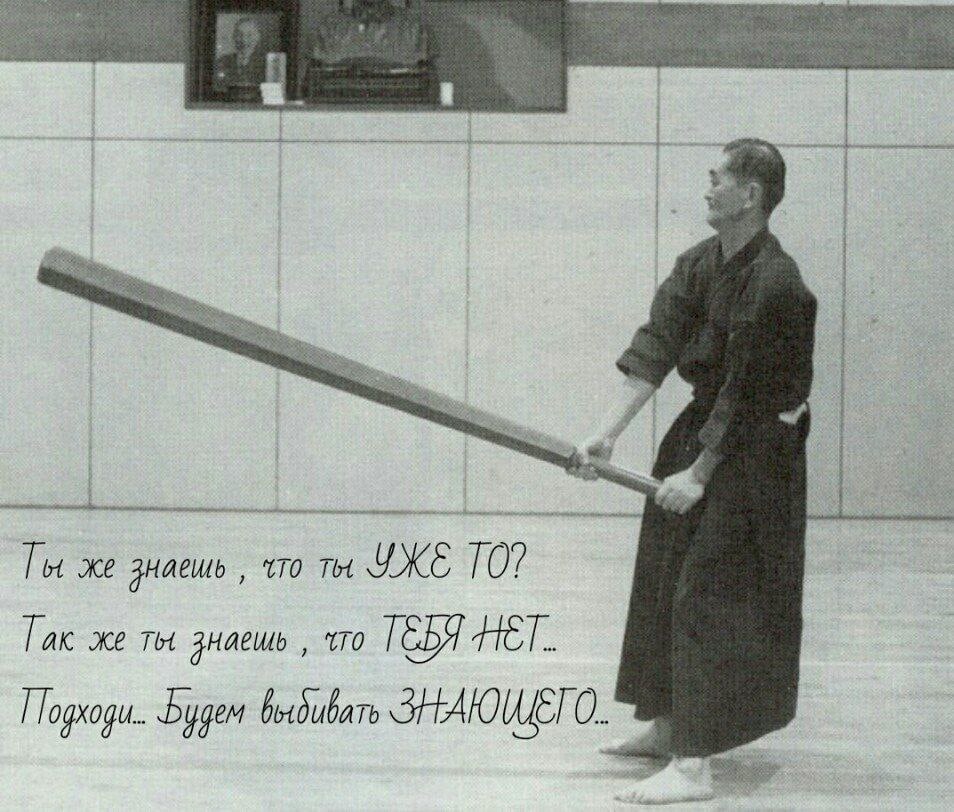 Ты же знаешь , что ты УЖЕ ТО?
Так же ты знаешь , что ТЕБЯ НЕТ...
Подходи... Будем выбивать ЗНАЮЩЕГО...